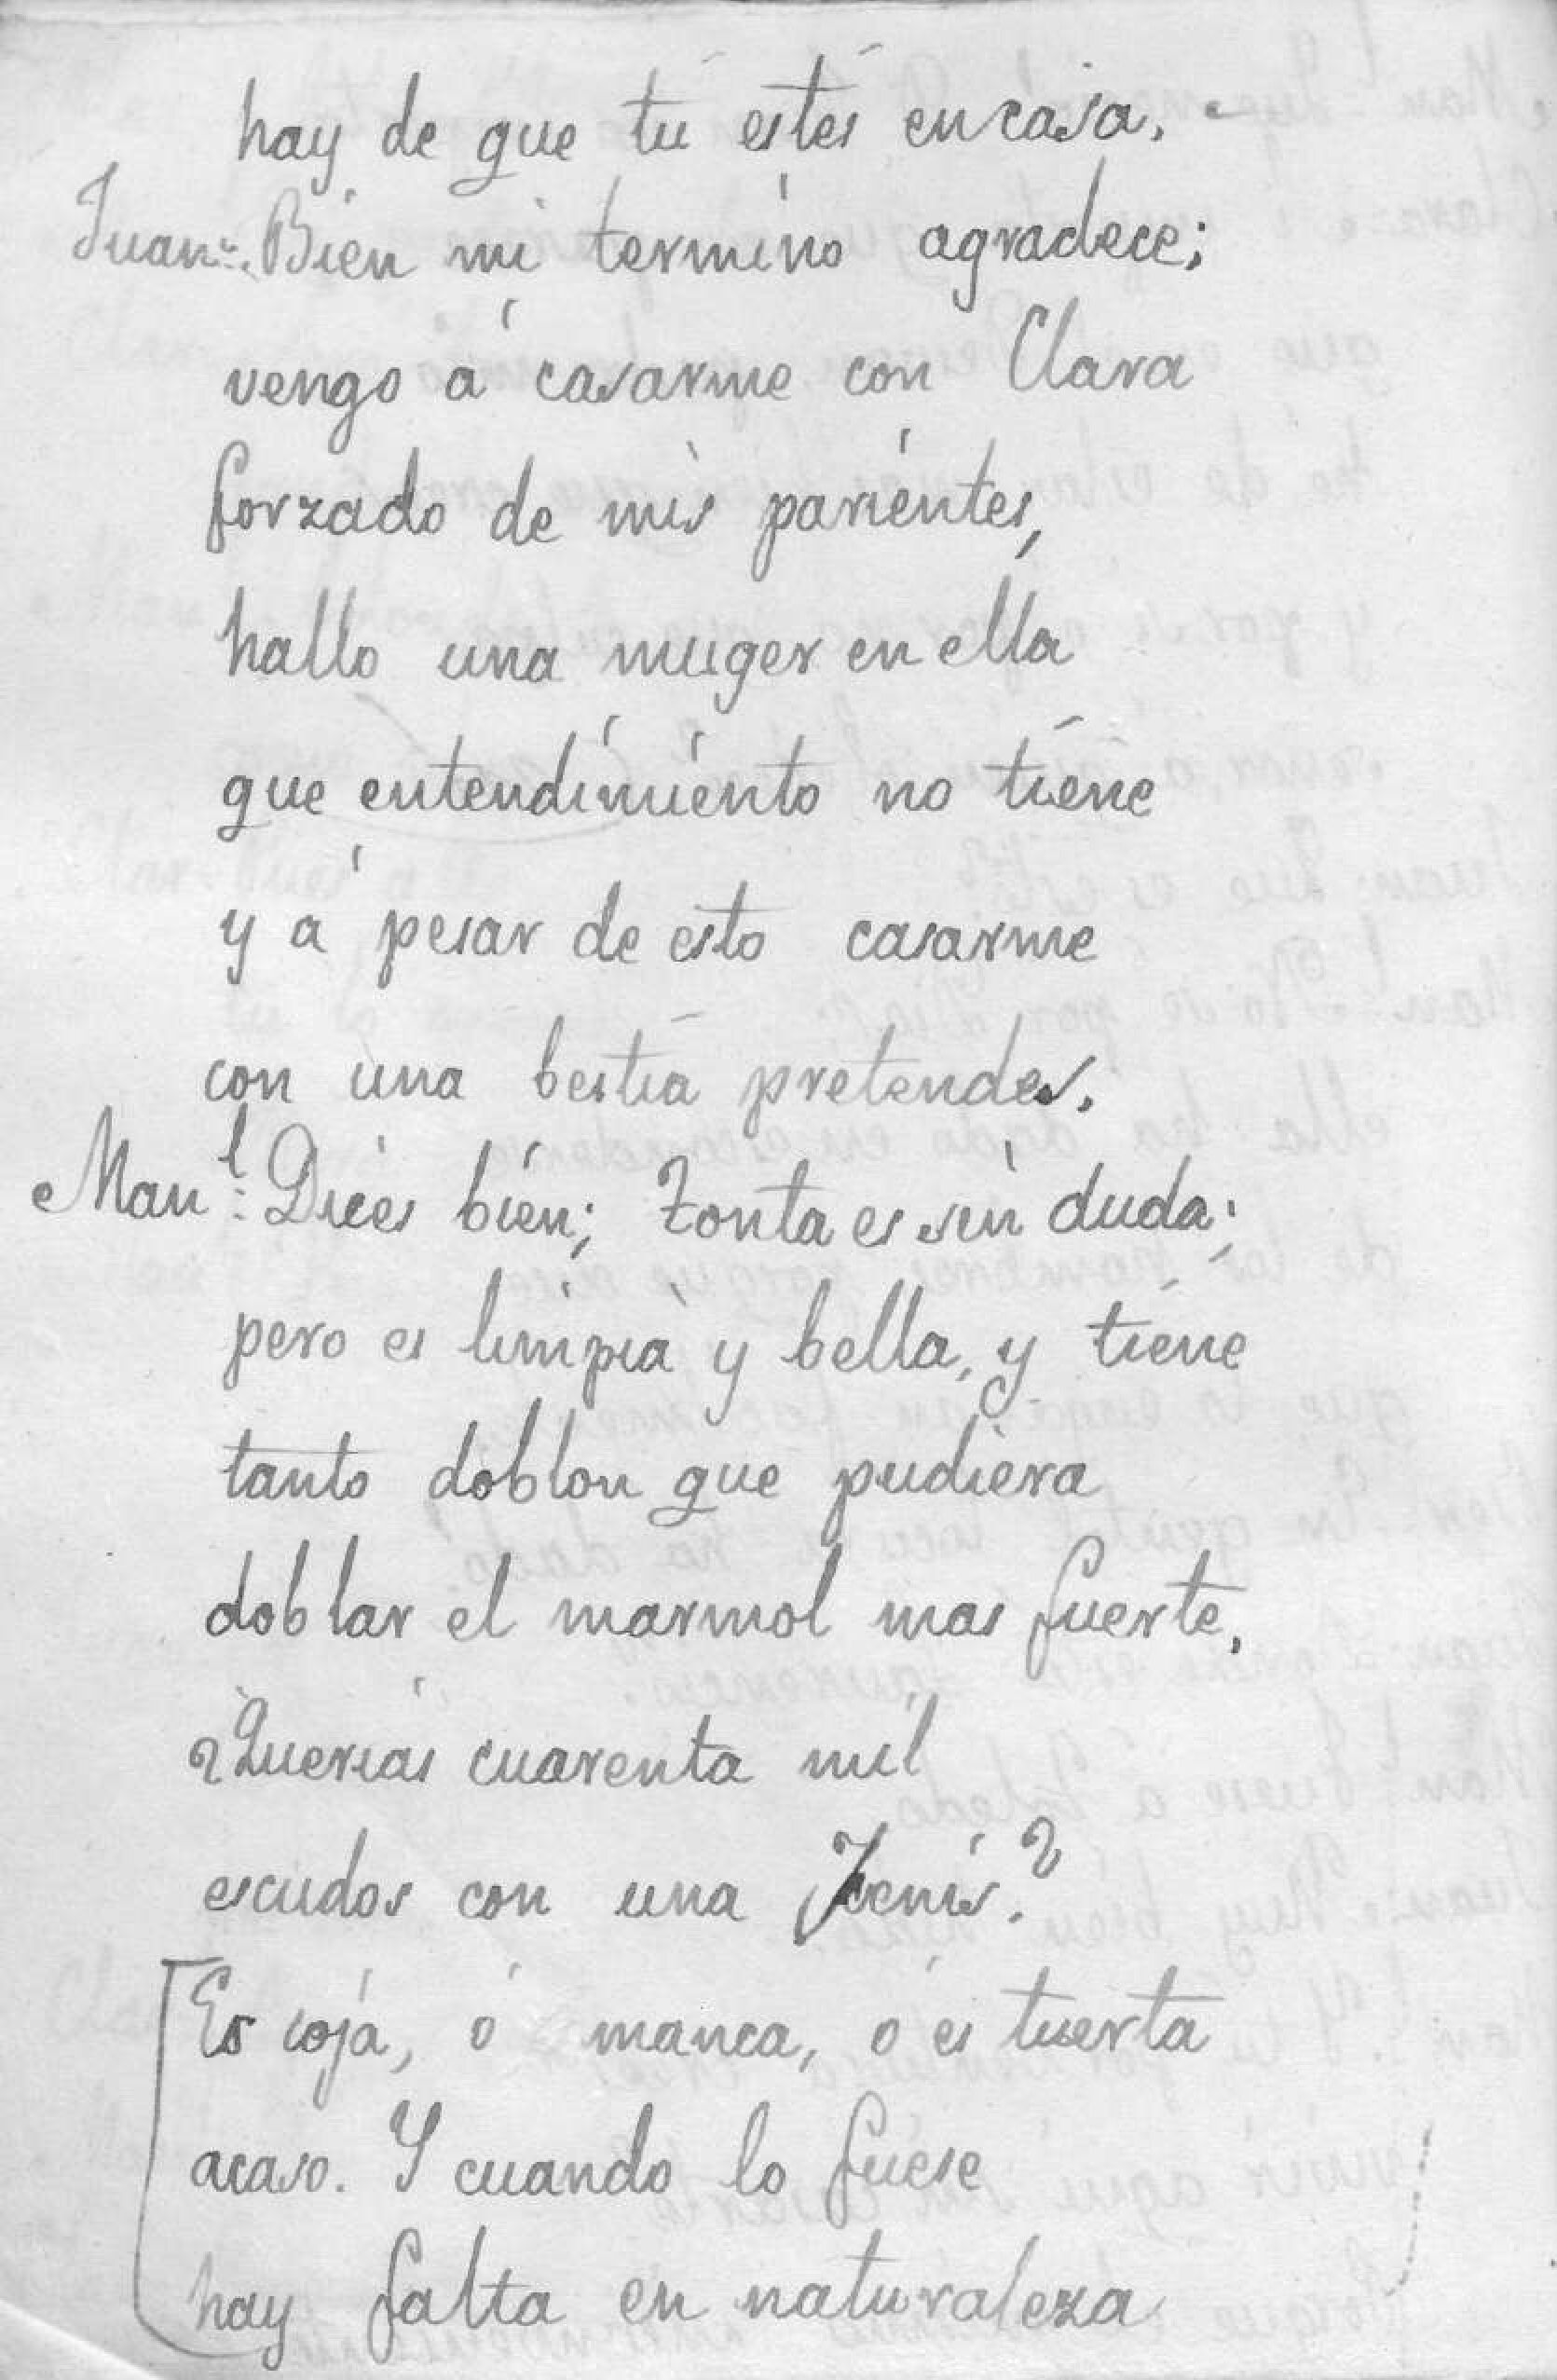 hay de que tú estés en casa.
Juan: Bien mi termino agradece;
vengo á casarme con Clara
forzado de mis parientes,
hallo una muger en ella
que entendimiento no tiene
y á pesar de esto casarme
con una bestia pretendes.
Manl: Dices bien; tonta es sin duda;
pero es limpia y bella, y tiene
tanto doblon que pudiera
doblar el marmol mas fuerte.
¿Querias cuarenta mil
escudos con una Fenis?
Es coja, ó manca, ó es tuerta
acaso. Y cuando lo fuese
hay falta en naturaleza